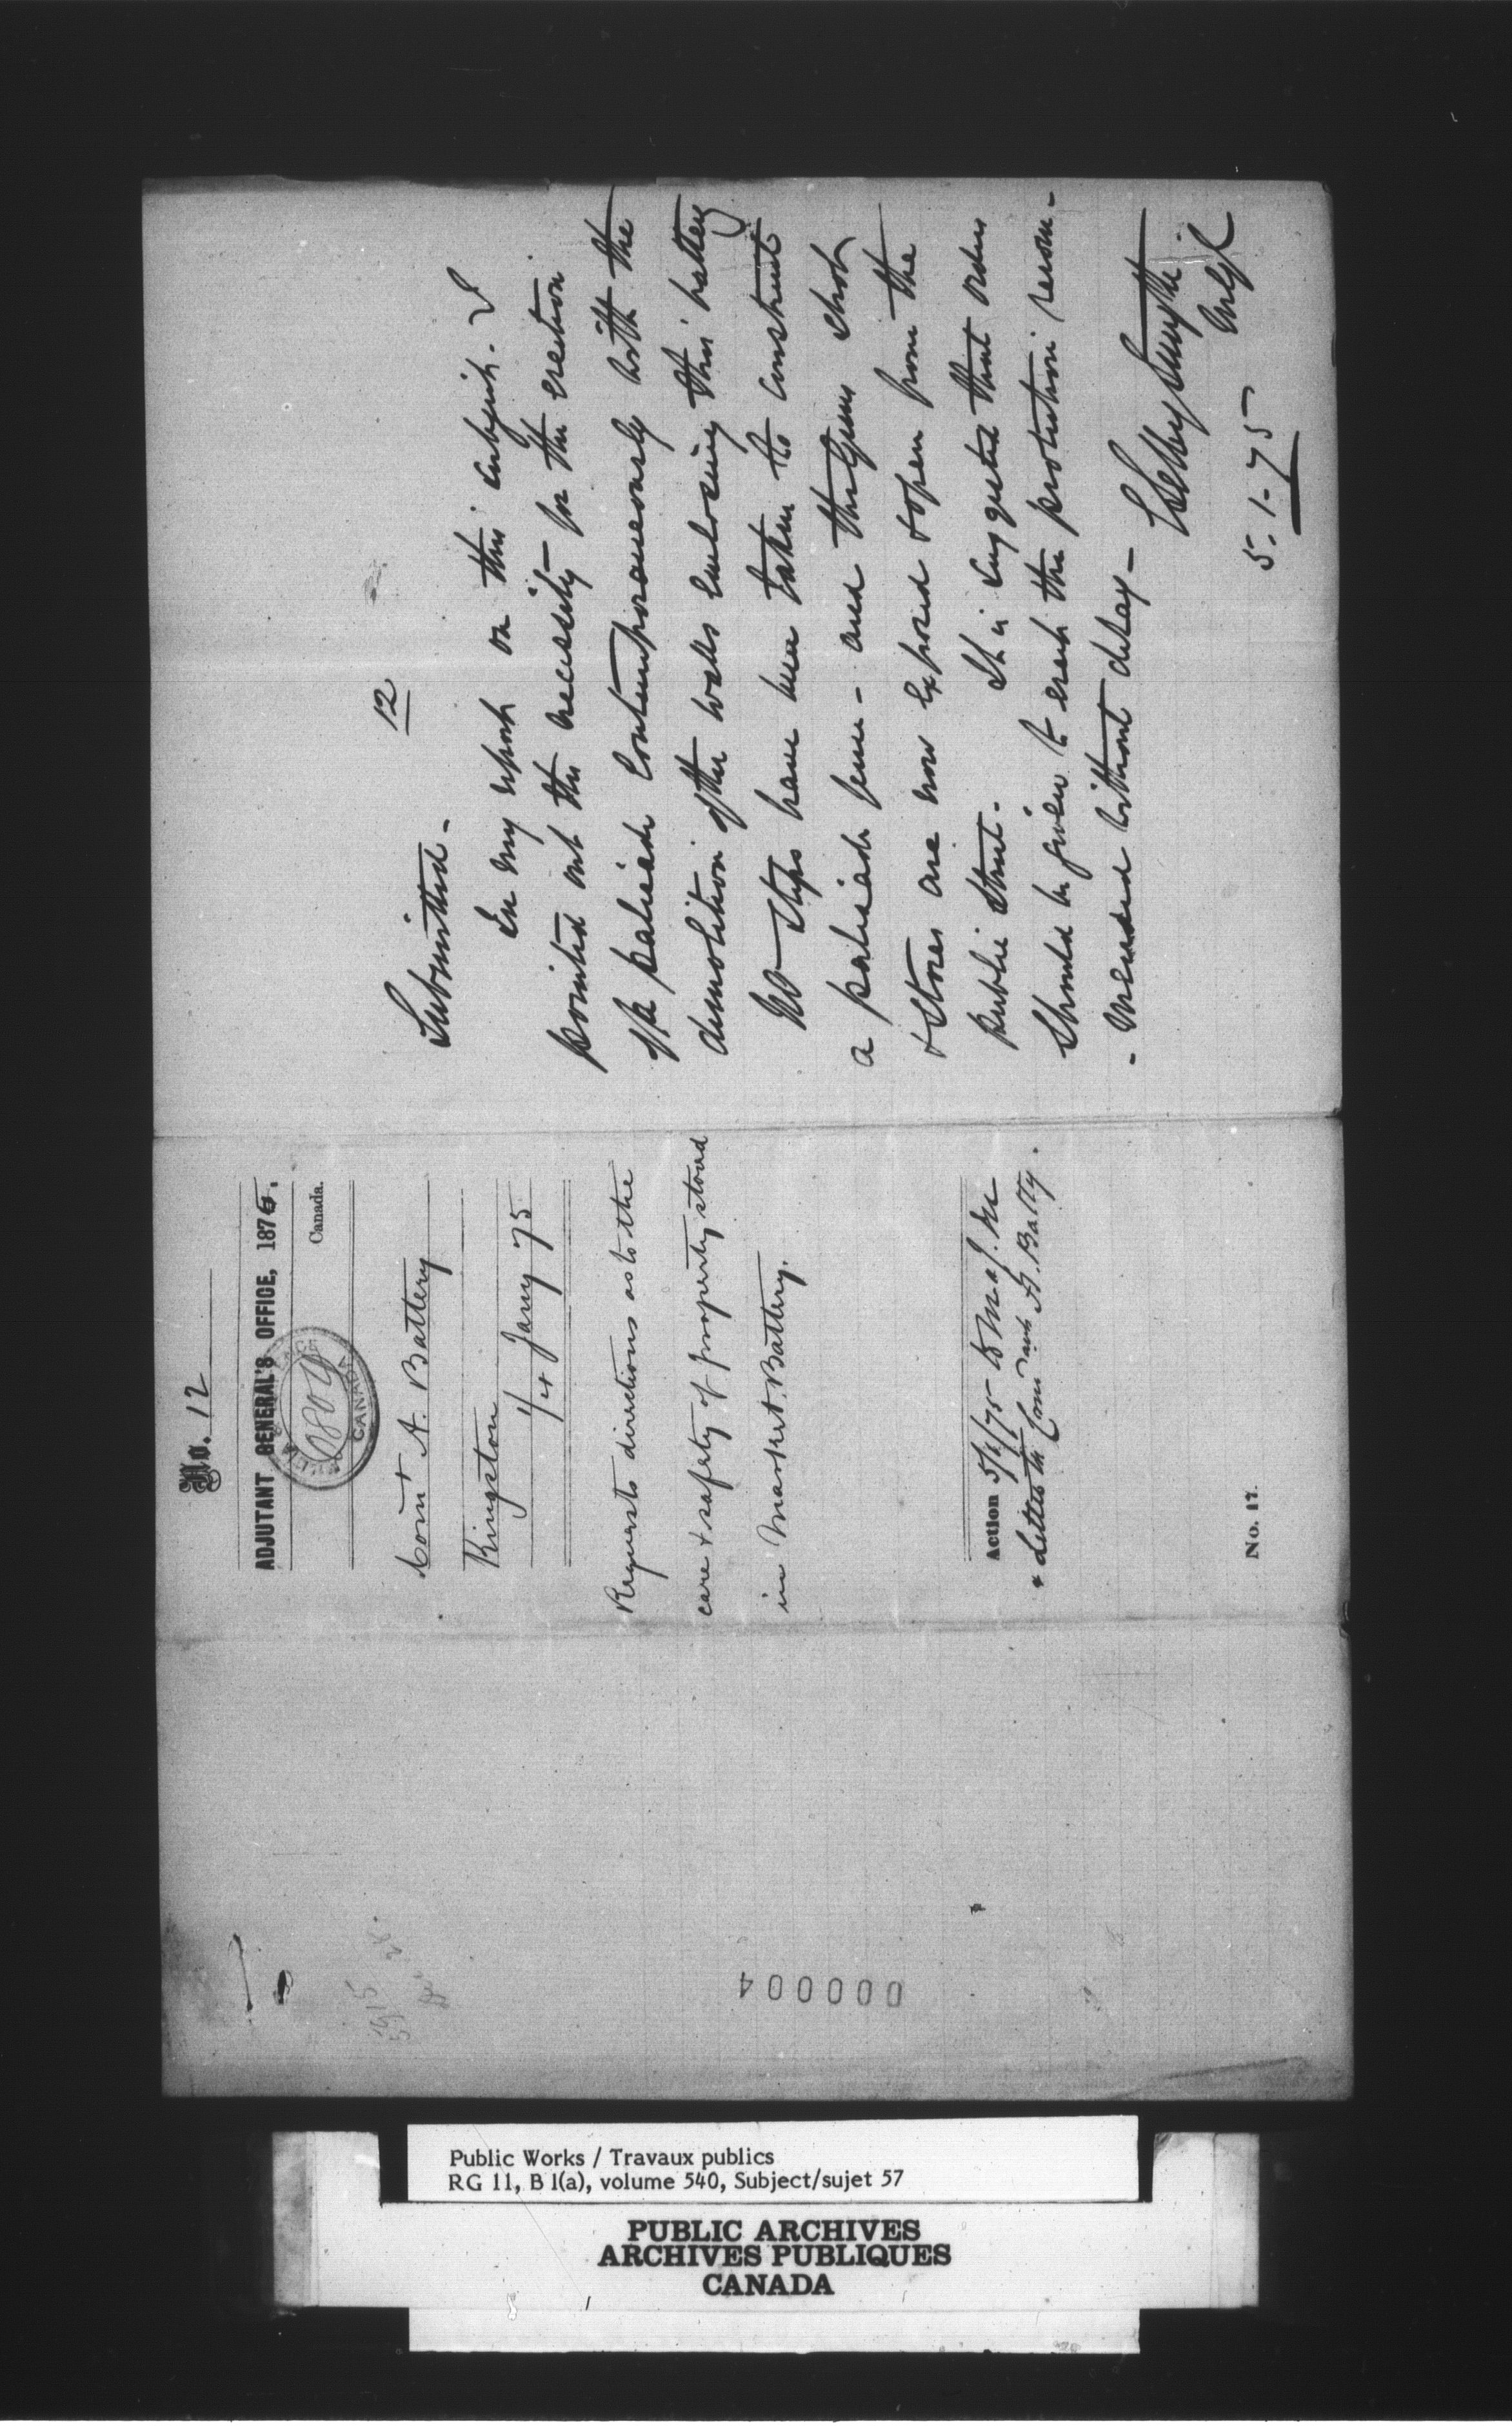 No. 12
ADJUTANT GENERAL'S OFFICE, 1875.
Canada.
10809
CANADA
Comt A. Battery
Kingston
1/4 Jany 75
Requests directions as to the
care & safety of property stored
in Market Battery.
Action 5/1/75 to
& letter to Comdant A. Batty.
No. 17.
12
Submitted -
In my report on this subject. I
pointed out the necessity for the erection
of a palisade contemporaneously with the
demolition of the walls enclosing this battery
No steps have been taken to construct
a palisade fence - and the guns shot
& stores are now exposed & open from the
public street. It is suggested that orders
should be given to erect the protection recom-
- mended without delay -
Selby Smyth
5.1-75
5915
000004
Public Works / Travaux publics
RG 11, B 1(a), volume 540, Subject/sujet 57
PUBLIC ARCHIVES
ARCHIVES PUBLIQUES
CANADA